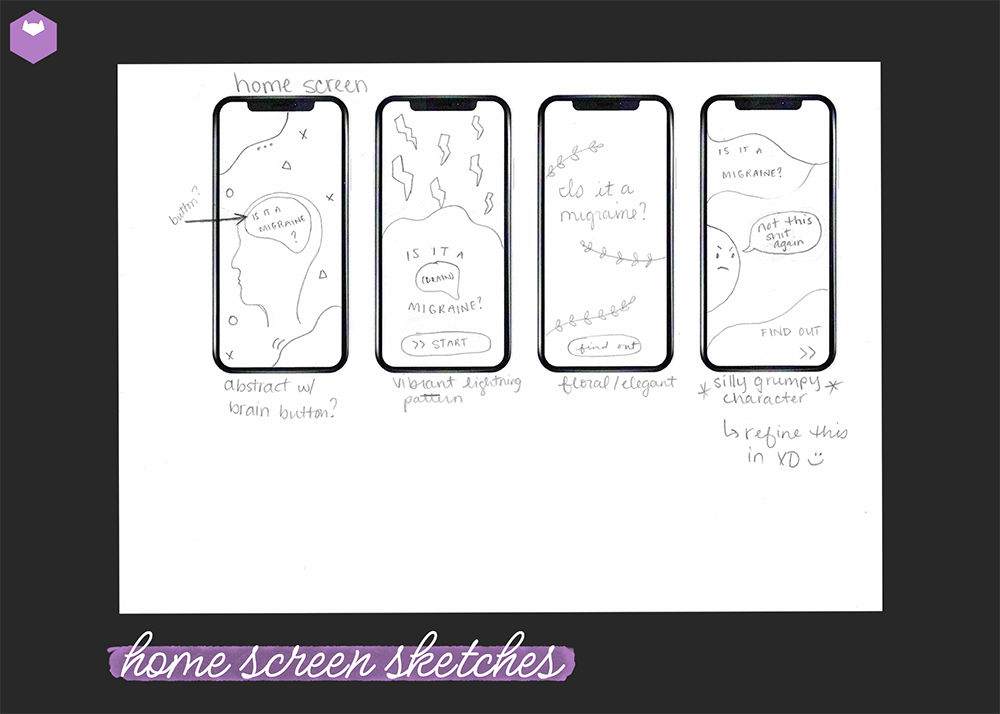 home screen
button?
IS IT A
MIGRAINE
?
abstract w/
brain button?
IS IT A
(BRAIN)
MIGRAINE?
>> START
vibrant lightning
pattern
Is it a
migraine?
find out
floral/elegant
IS IT A
MIGRAINE?
not this
shit
again
FIND OUT
>>
* silly grumpy *
character
↳ refine this
in XD
home screen sketches